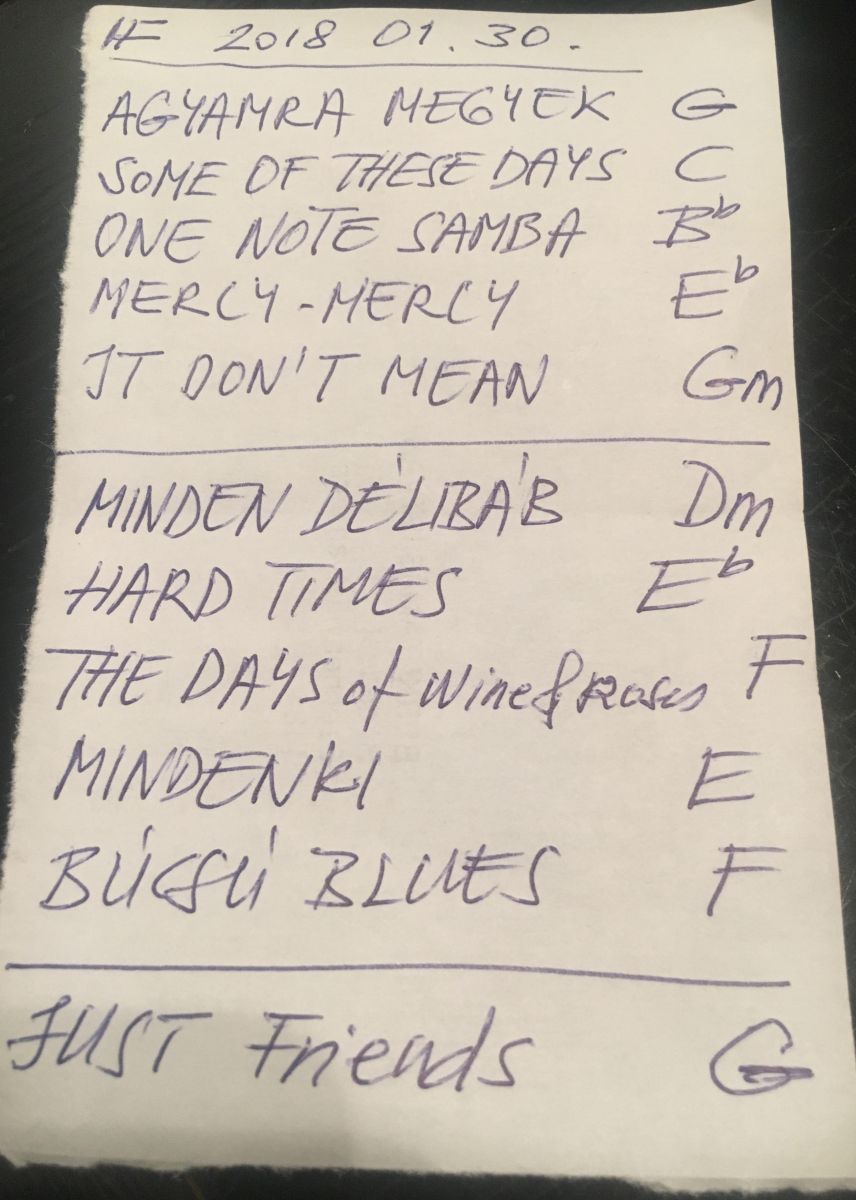 HF 2018 01.30.
AGYAMRA MEGYEK G
SOME OF THESE DAYS C
ONE NOTE SAMBA Bb
MERCY-MERCY Eb
IT DON'T MEAN Gm
MINDEN DÉLIBÁB Dm
HARD TIMES Eb
THE DAYS of Wine & Roses F
MINDENKI E
BÚCSÚ BLUES F
JUST Friends G